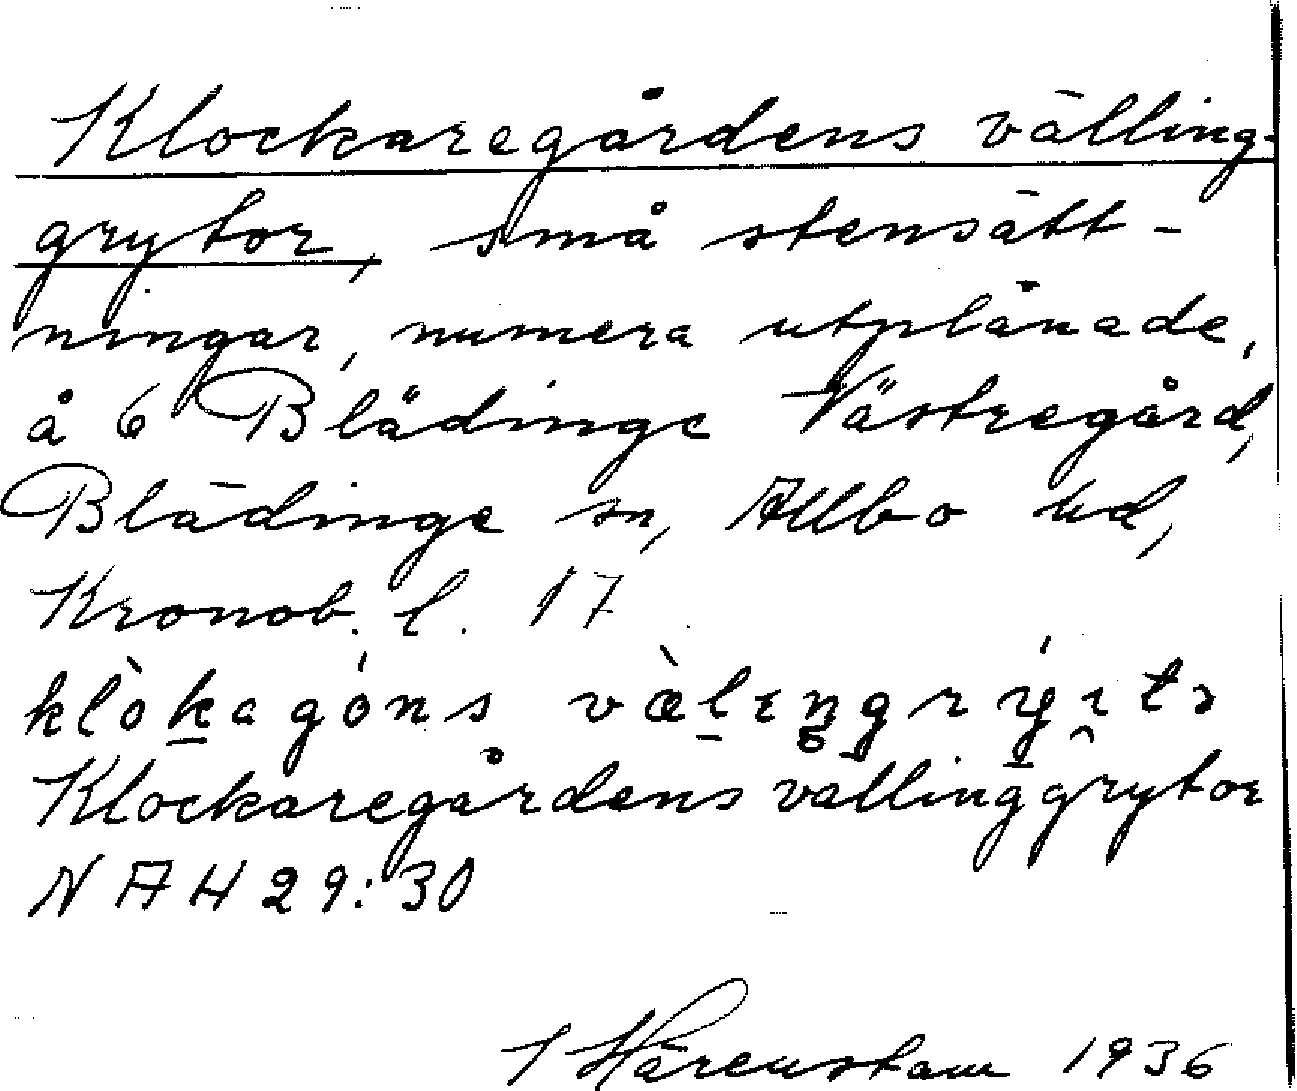 Klockaregårdens välling-
grytor, små stensätt-
ningar, numera utplånade,
å 6 Blädinge Västregård,
Blädinge sn, Allbo hd,
Kronob. l. 17
Klockaregårdens vällinggrytor
NAH 29:30
Härenstam 1936